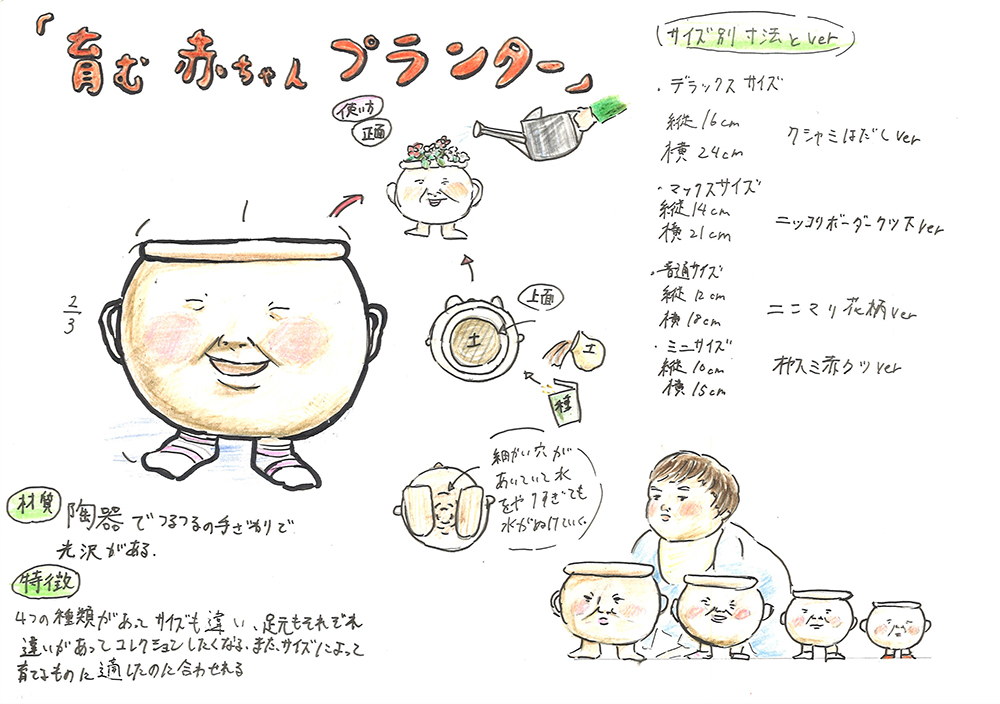 「育む 赤ちゃん プランター」
使い方
正面
2/3
上面
土
土
種
細かい穴が
あいていて水
をやりすぎても
水がぬけていく。
材質
陶器でつるつるの手ざわりで
光沢がある.
特徴
4つの種類があってサイズも違い、足元もそれぞれ
違いがあってコレクションしたくなる、また、サイズによって
育てるものに適したのに合わせれる
サイズ別寸法とver
・デラックスサイズ
縦16cm
横24cm
クシャミはだしver
・マックスサイズ
縦14cm
横21cm
ニッコリボーダークツ下ver
・普通サイズ
縦12cm
横18cm
ニコマリ花柄ver
・ミニサイズ
縦10cm
横15cm
オヤスミ赤クツver